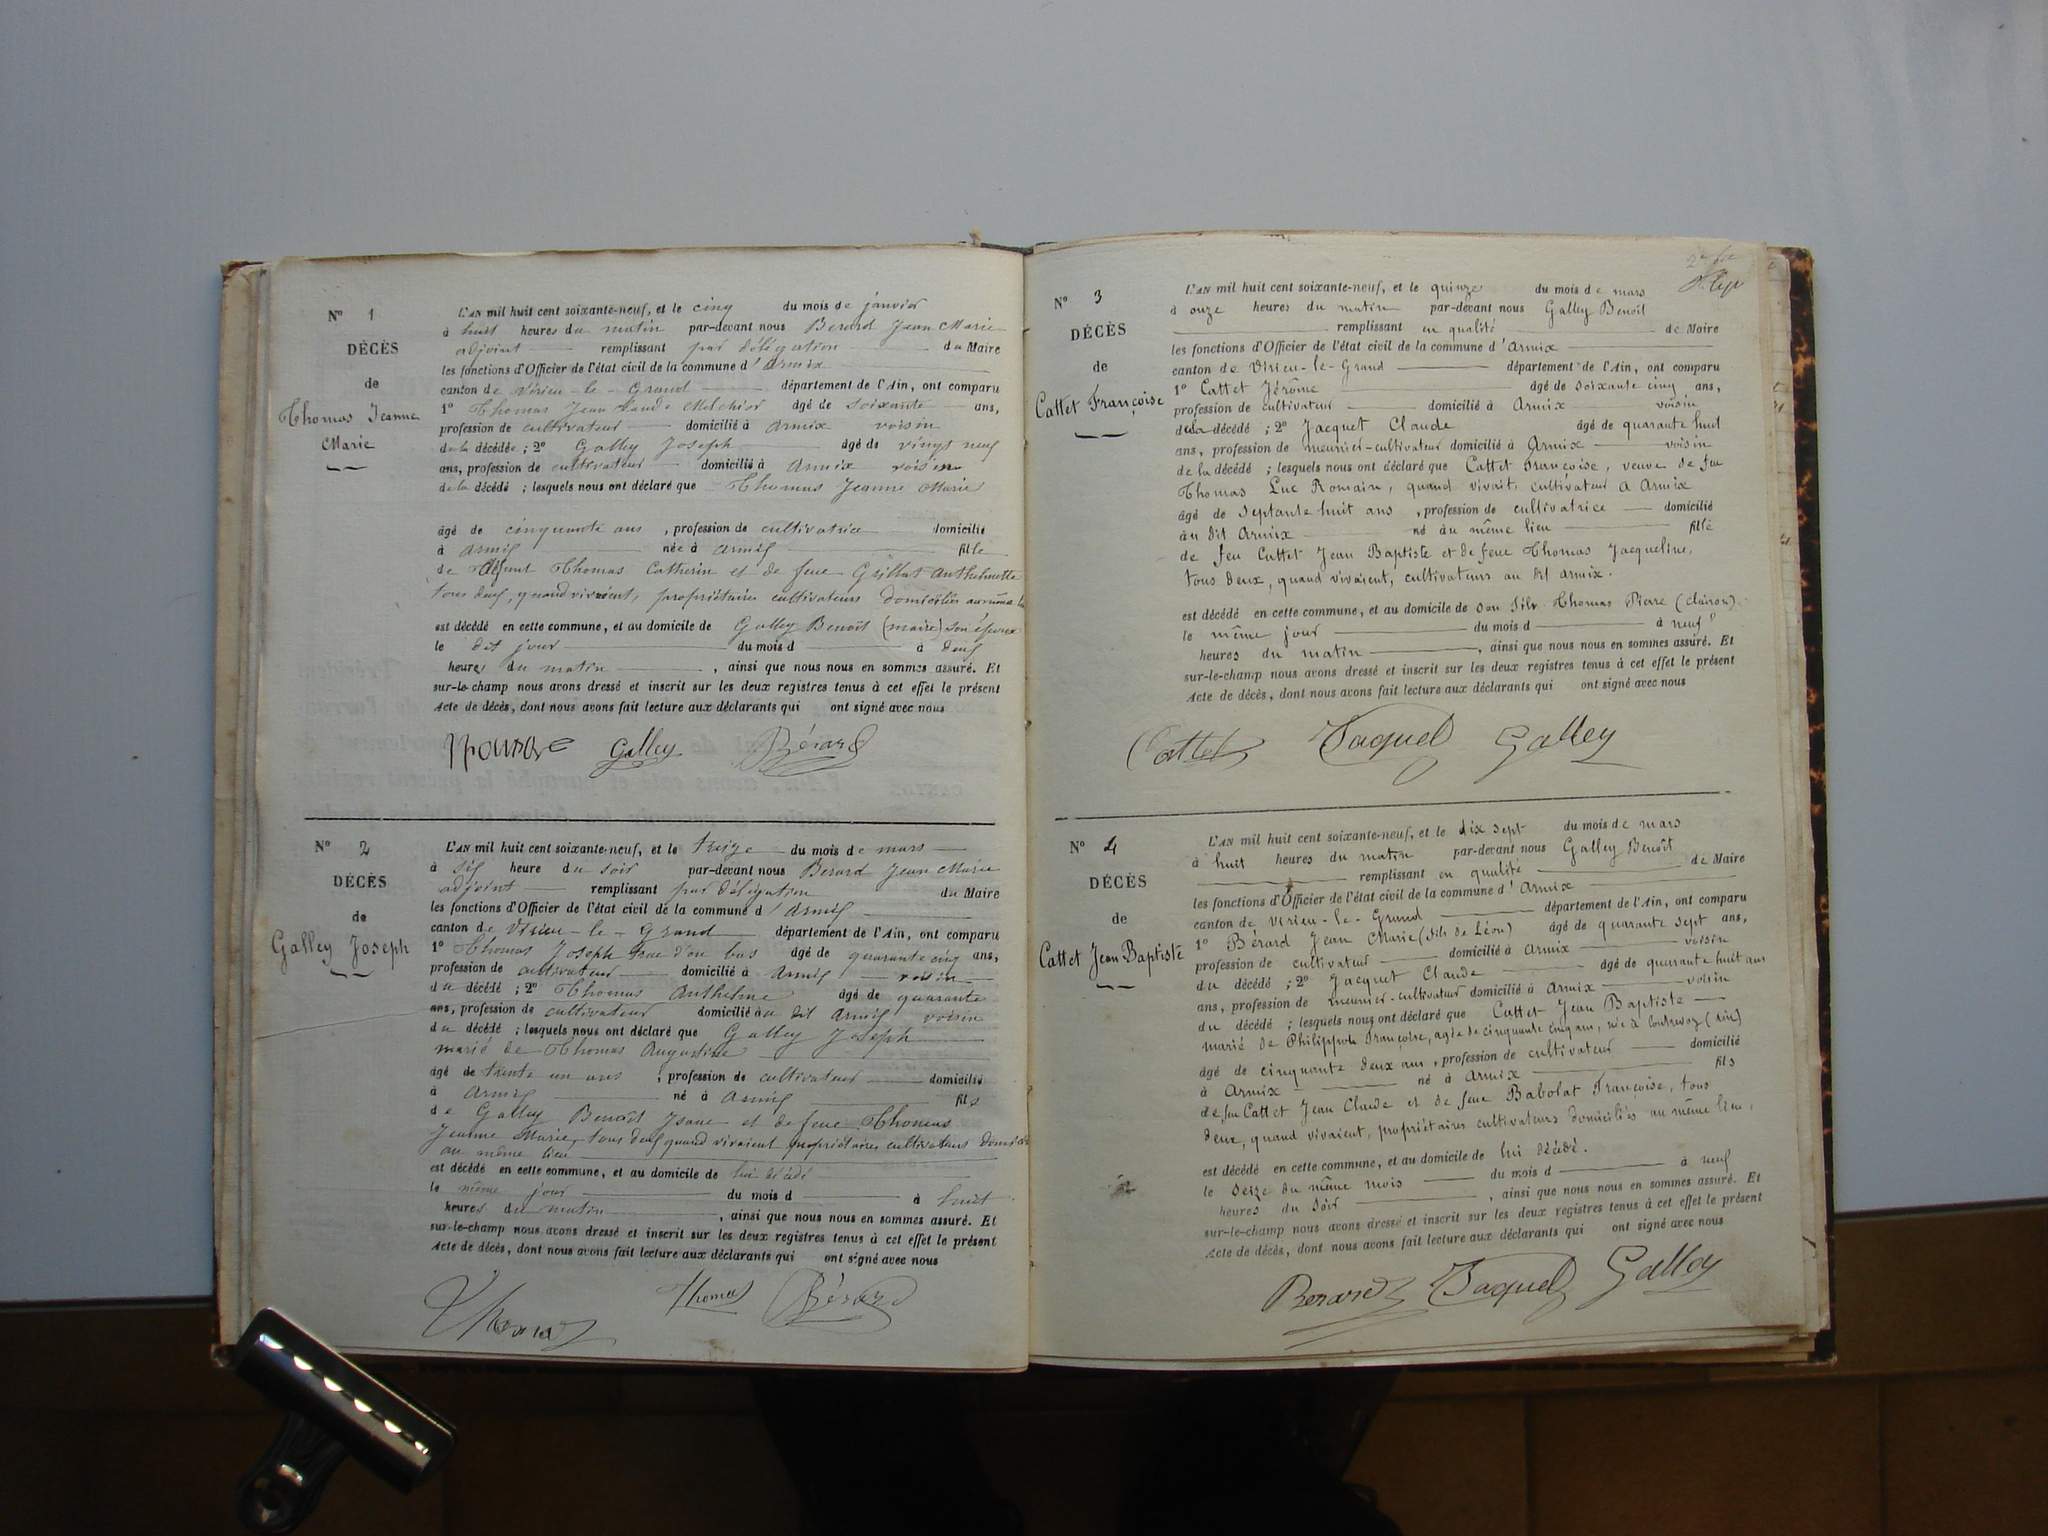 N° 1
DÉCÈS
de
Thomas Jeanne
Marie
L'AN mil huit cent soixante-neuf, et le cinq du mois de janvier
à huit heures du matin par-devant nous Berard Jean Marie
adjoint remplissant par délégation du Maire
les fonctions d'Officier de l'état civil de la commune d'Armix
canton de Virieu-le-Grand département de l'Ain, ont comparu
1° Thomas Jean Claude Melchior âgé de soixante ans,
profession de cultivateur domicilié à Armix voisin
de la décédée ; 2° Galley Joseph âgé de vingt neuf
ans, profession de cultivateur domicilié à Armix voisin
de la décédé ; lesquels nous ont déclaré que Thomas Jeanne Marie
âgé de cinquante ans, profession de cultivatrice domicilié
à Armix née à Armix fille
de défunt Thomas Catherin et de feue Grillot Anthelmette
tous deux, quand vivaient, propriétaires cultivateurs domiciliés au même
est décédé en cette commune, et au domicile de Galley Benoit (maire) son époux
le dit jour du mois d à deux
heures du matin, ainsi que nous nous en sommes assuré. Et
sur-le-champ nous avons dressé et inscrit sur les deux registres tenus à cet effet le présent
Acte de décès, dont nous avons fait lecture aux déclarants qui ont signé avec nous
Thomas Galley Bérard
N° 2
DÉCÈS
de
Galley Joseph
L'AN mil huit cent soixante-neuf, et le treize du mois de mars
à six heure du soir par-devant nous Berard Jean Marie
adjoint remplissant par délégation du Maire
les fonctions d'Officier de l'état civil de la commune d'Armix
canton de Virieu-le-Grand département de l'Ain, ont comparu
1° Thomas Joseph d'en bas âgé de quarante cinq ans,
profession de cultivateur domicilié à Armix voisin
du décédé ; 2° Thomas Anthelme âgé de quarante
ans, profession de cultivateur domicilié au dit Armix voisin
du décédé ; lesquels nous ont déclaré que Galley Joseph
marié de Thomas Augustine
âgé de trente un ans, profession de cultivateur domicilié
à Armix né à Armix fils
de Galley Benoît Isaac et de feue Thomas
Jeanne Marie, tous deux quand vivaient propriétaires cultivateurs
au même lieu
est décédé en cette commune, et au domicile de lui décédé
le même jour du mois d à huit
heures du matin, ainsi que nous nous en sommes assuré. Et
sur-le-champ nous avons dressé et inscrit sur les deux registres tenus à cet effet le présent
Acte de décès, dont nous avons fait lecture aux déclarants qui ont signé avec nous
Thomas Thomas Bérard
N° 3
DÉCÈS
de
Cattet Françoise
L'AN mil huit cent soixante-neuf, et le quinze du mois de mars
à onze heures du matin par-devant nous Galley Benoit
remplissant en qualité de Maire
les fonctions d'Officier de l'état civil de la commune d'Armix
canton de Virieu-le-Grand département de l'Ain, ont comparu
1° Cattet Jérôme âgé de soixante cinq ans,
profession de cultivateur domicilié à Armix voisin
de la décédé ; 2° Jacquet Claude âgé de quarante huit
ans, profession de meunier-cultivateur domicilié à Armix voisin
de la décédé ; lesquels nous ont déclaré que Cattet Françoise, veuve de feu
Thomas Luc Romain, quand vivait, cultivateur à Armix
âgé de septante huit ans, profession de cultivatrice domicilié
au dit Armix né au même lieu fille
de feu Cattet Jean Baptiste et de feue Thomas Jacqueline,
tous deux, quand vivaient, cultivateurs au dit Armix.
est décédé en cette commune, et au domicile de son fils Thomas Pierre (clairon)
le même jour du mois d à neuf
heures du matin, ainsi que nous nous en sommes assuré. Et
sur-le-champ nous avons dressé et inscrit sur les deux registres tenus à cet effet le présent
Acte de décès, dont nous avons fait lecture aux déclarants qui ont signé avec nous
Cattet Jaquet Galley
N° 4
DÉCÈS
de
Cattet Jean Baptiste
L'AN mil huit cent soixante-neuf, et le dix sept du mois de mars
à huit heures du matin par-devant nous Galley Benoît
remplissant en qualité de Maire
les fonctions d'Officier de l'état civil de la commune d'Armix
canton de Virieu-le-Grand département de l'Ain, ont comparu
1° Bérard Jean Marie (fils de Léon) âgé de quarante sept ans,
profession de cultivateur domicilié à Armix voisin
du décédé ; 2° Jacquet Claude âgé de quarante huit ans
ans, profession de meunier-cultivateur domicilié à Armix voisin
du décédé ; lesquels nous ont déclaré que Cattet Jean Baptiste
marié de Philippon Françoise, agée de cinquante cinq ans, née à Contrevoz (Ain)
âgé de cinquante deux ans, profession de cultivateur domicilié
à Armix né à Armix fils
de feu Cattet Jean Claude et de feue Babolat Françoise, tous
deux, quand vivaient, propriétaires cultivateurs domiciliés au même lieu.
est décédé en cette commune, et au domicile de lui décédé.
le seize du même mois du mois d à neuf
heures du soir, ainsi que nous nous en sommes assuré. Et
sur-le-champ nous avons dressé et inscrit sur les deux registres tenus à cet effet le présent
Acte de décès, dont nous avons fait lecture aux déclarants qui ont signé avec nous
Berard Jaquet Galley